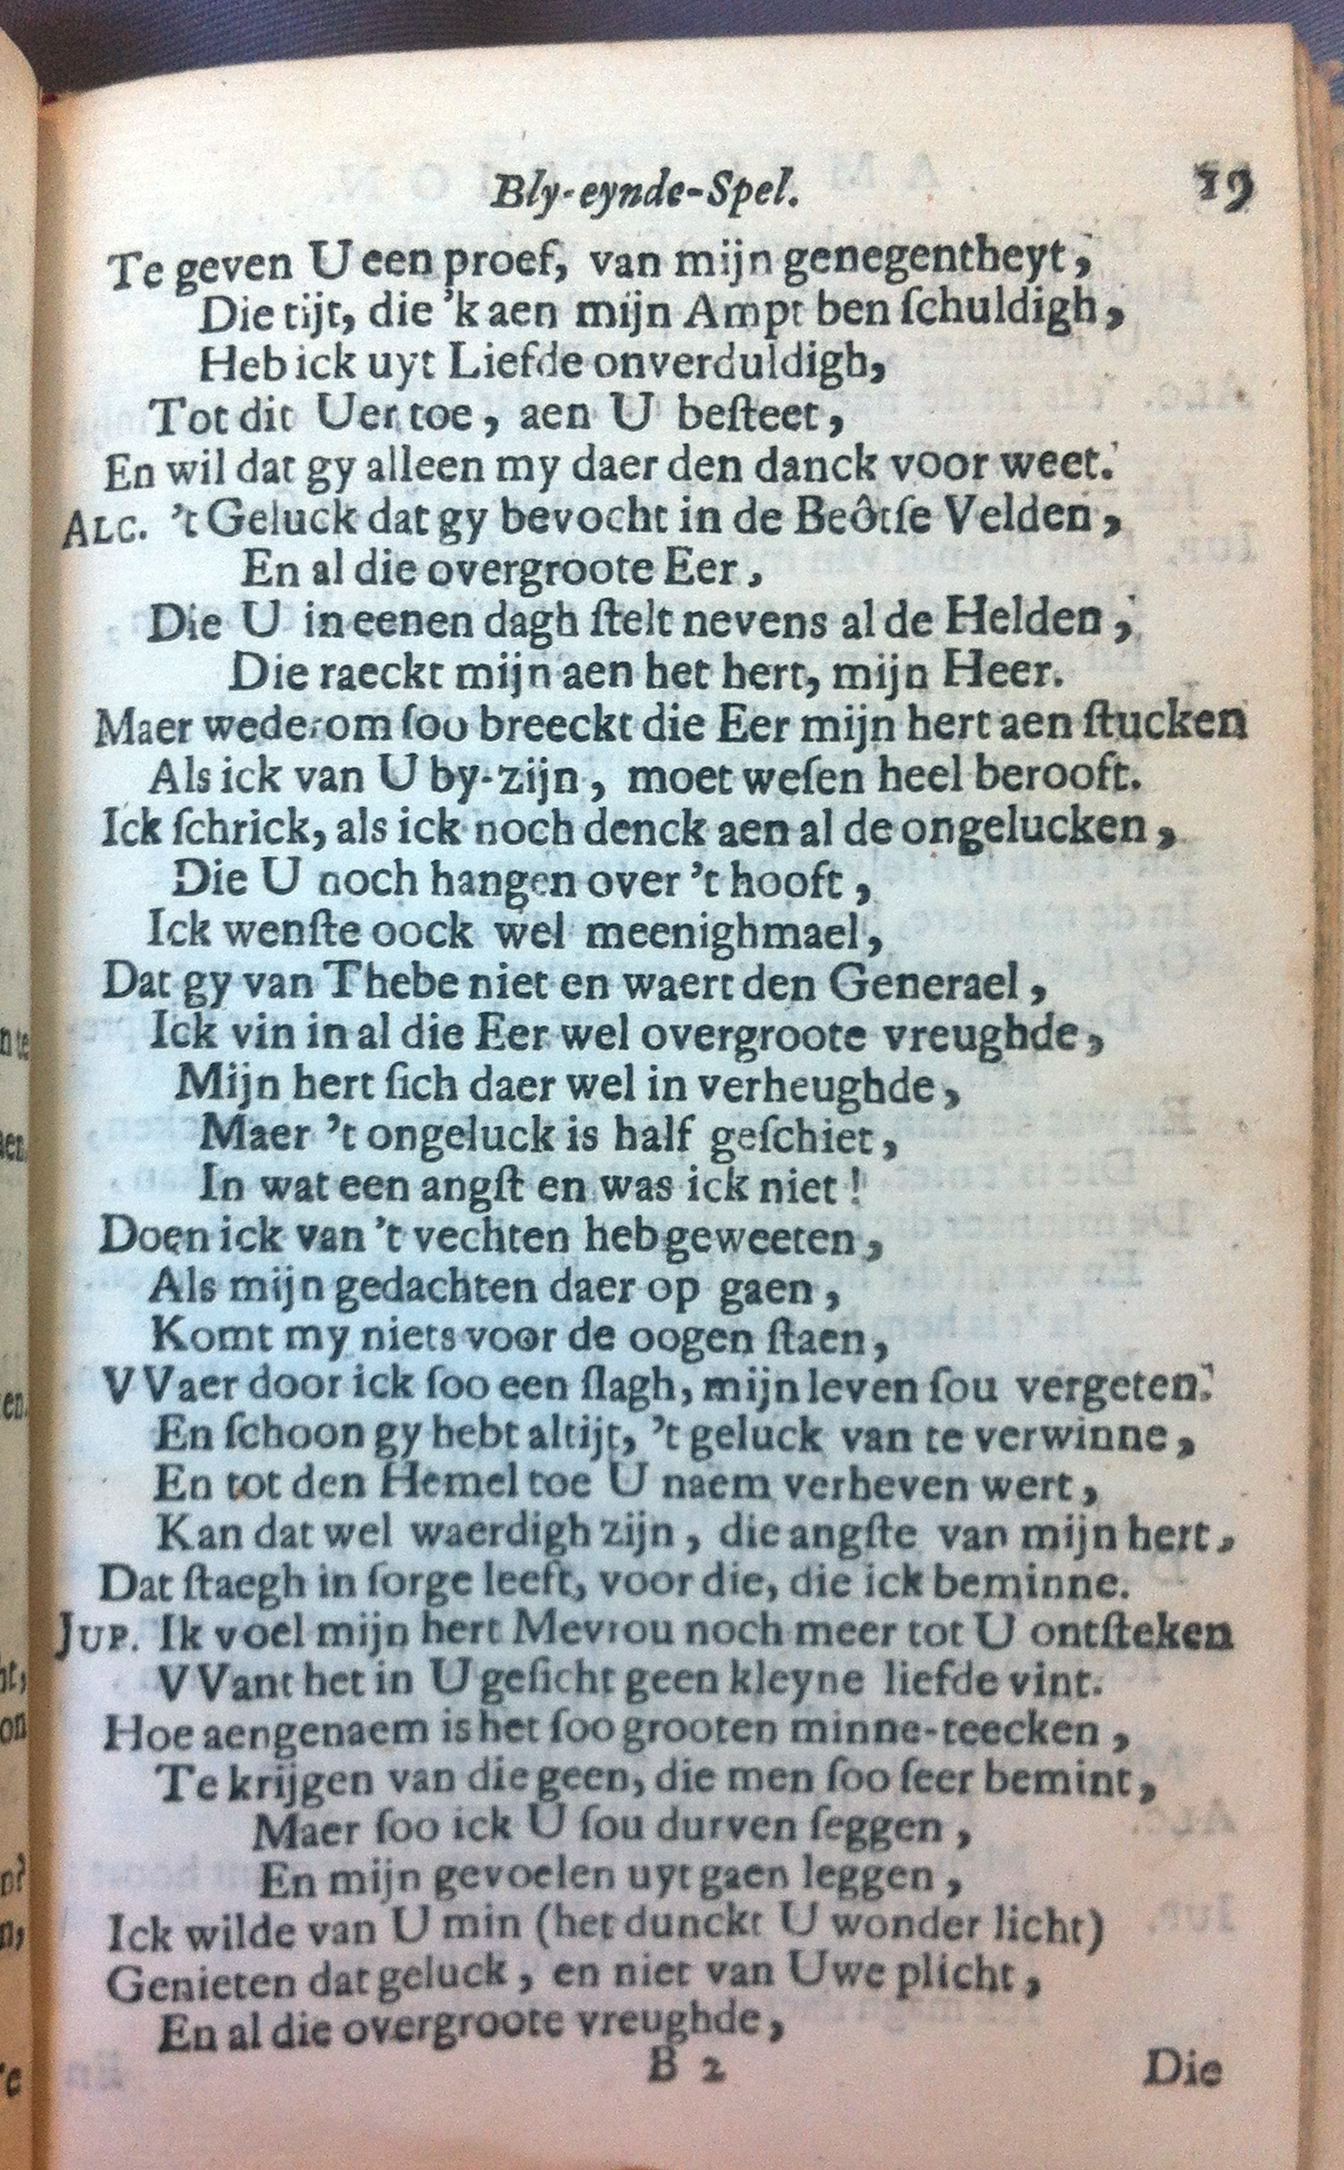 Bly-eynde-Spel. 19
Te geven U een proef, van mijn genegentheyt,
Die tijt, die 'k aen mijn Ampt ben ſchuldigh,
Heb ick uyt Liefde onverduldigh,
Tot dit Uer toe, aen U beſteet,
En wil dat gy alleen my daer den danck voor weet.
ALC. 't Geluck dat gy bevocht in de Beôtſe Velden,
En al die overgroote Eer,
Die U in eenen dagh ſtelt nevens al de Helden,
Die raeckt mijn aen het hert, mijn Heer.
Maer wederom ſou breeckt die Eer mijn hert aen ſtucken
Als ick van U by-zijn, moet weſen heel berooft.
Ick ſchrick, als ick noch denck aen al de ongelucken,
Die U noch hangen over 't hooft,
Ick wenſte oock wel meenighmael,
Dat gy van Thebe niet en waert den Generael,
Ick vin in al die Eer wel overgroote vreughde,
Mijn hert ſich daer wel in verheughde,
Maer 't ongeluck is half geſchiet,
In wat een angſt en was ick niet!
Doen ick van 't vechten heb geweeten,
Als mijn gedachten daer op gaen,
Komt my niets voor de oogen ſtaen,
VVaer door ick ſoo een ſlagh, mijn leven ſou vergeten.
En ſchoon gy hebt altijt, 't geluck van te verwinne,
En tot den Hemel toe U naem verheven wert,
Kan dat wel waerdigh zijn, die angſte van mijn hert,
Dat ſtaegh in ſorge leeft, voor die, die ick beminne.
JUP. Ik voel mijn hert Mevrou noch meer tot U ontſteken
VVant het in U geſicht geen kleyne liefde vint.
Hoe aengenaem is het ſoo grooten minne-teecken,
Te krijgen van die geen, die men ſoo ſeer bemint,
Maer ſoo ick U ſou durven ſeggen,
En mijn gevoelen uyt gaen leggen,
Ick wilde van U min (het dunckt U wonder licht)
Genieten dat geluck, en niet van Uwe plicht,
En al die overgroote vreughde,
B 2 Die